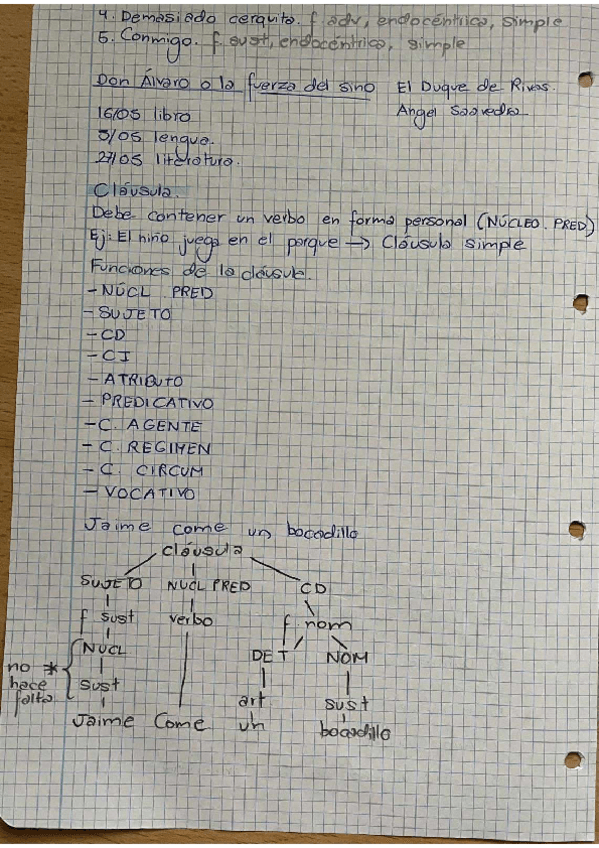 4. Demasiado cerquita. f adv, endocéntrica, simple
5. Conmigo. f sust, endocéntrica, simple
Don Álvaro o la fuerza del sino El Duque de Rivas.
Angel Saavedra
16/05 libro
3/05 lengua.
27/05 literatura.
Cláusula.
Debe contener un verbo en forma personal (NÚCLEO. PRED)
Ej: El niño juega en el parque → Cláusula simple
Funciones de la cláusula.
- NÚCL. PRED
- SUJETO
- CD
- CI
- ATRIBUTO
- PREDICATIVO
- C. AGENTE
- C. REGIMEN
- C. CIRCUM
- VOCATIVO
Jaime come un bocadillo
cláusula
SUJETO NUCL PRED CD
f sust verbo f. nom
NUCL DET NOM
no * hace falta
sust art sust
Jaime Come un bocadillo